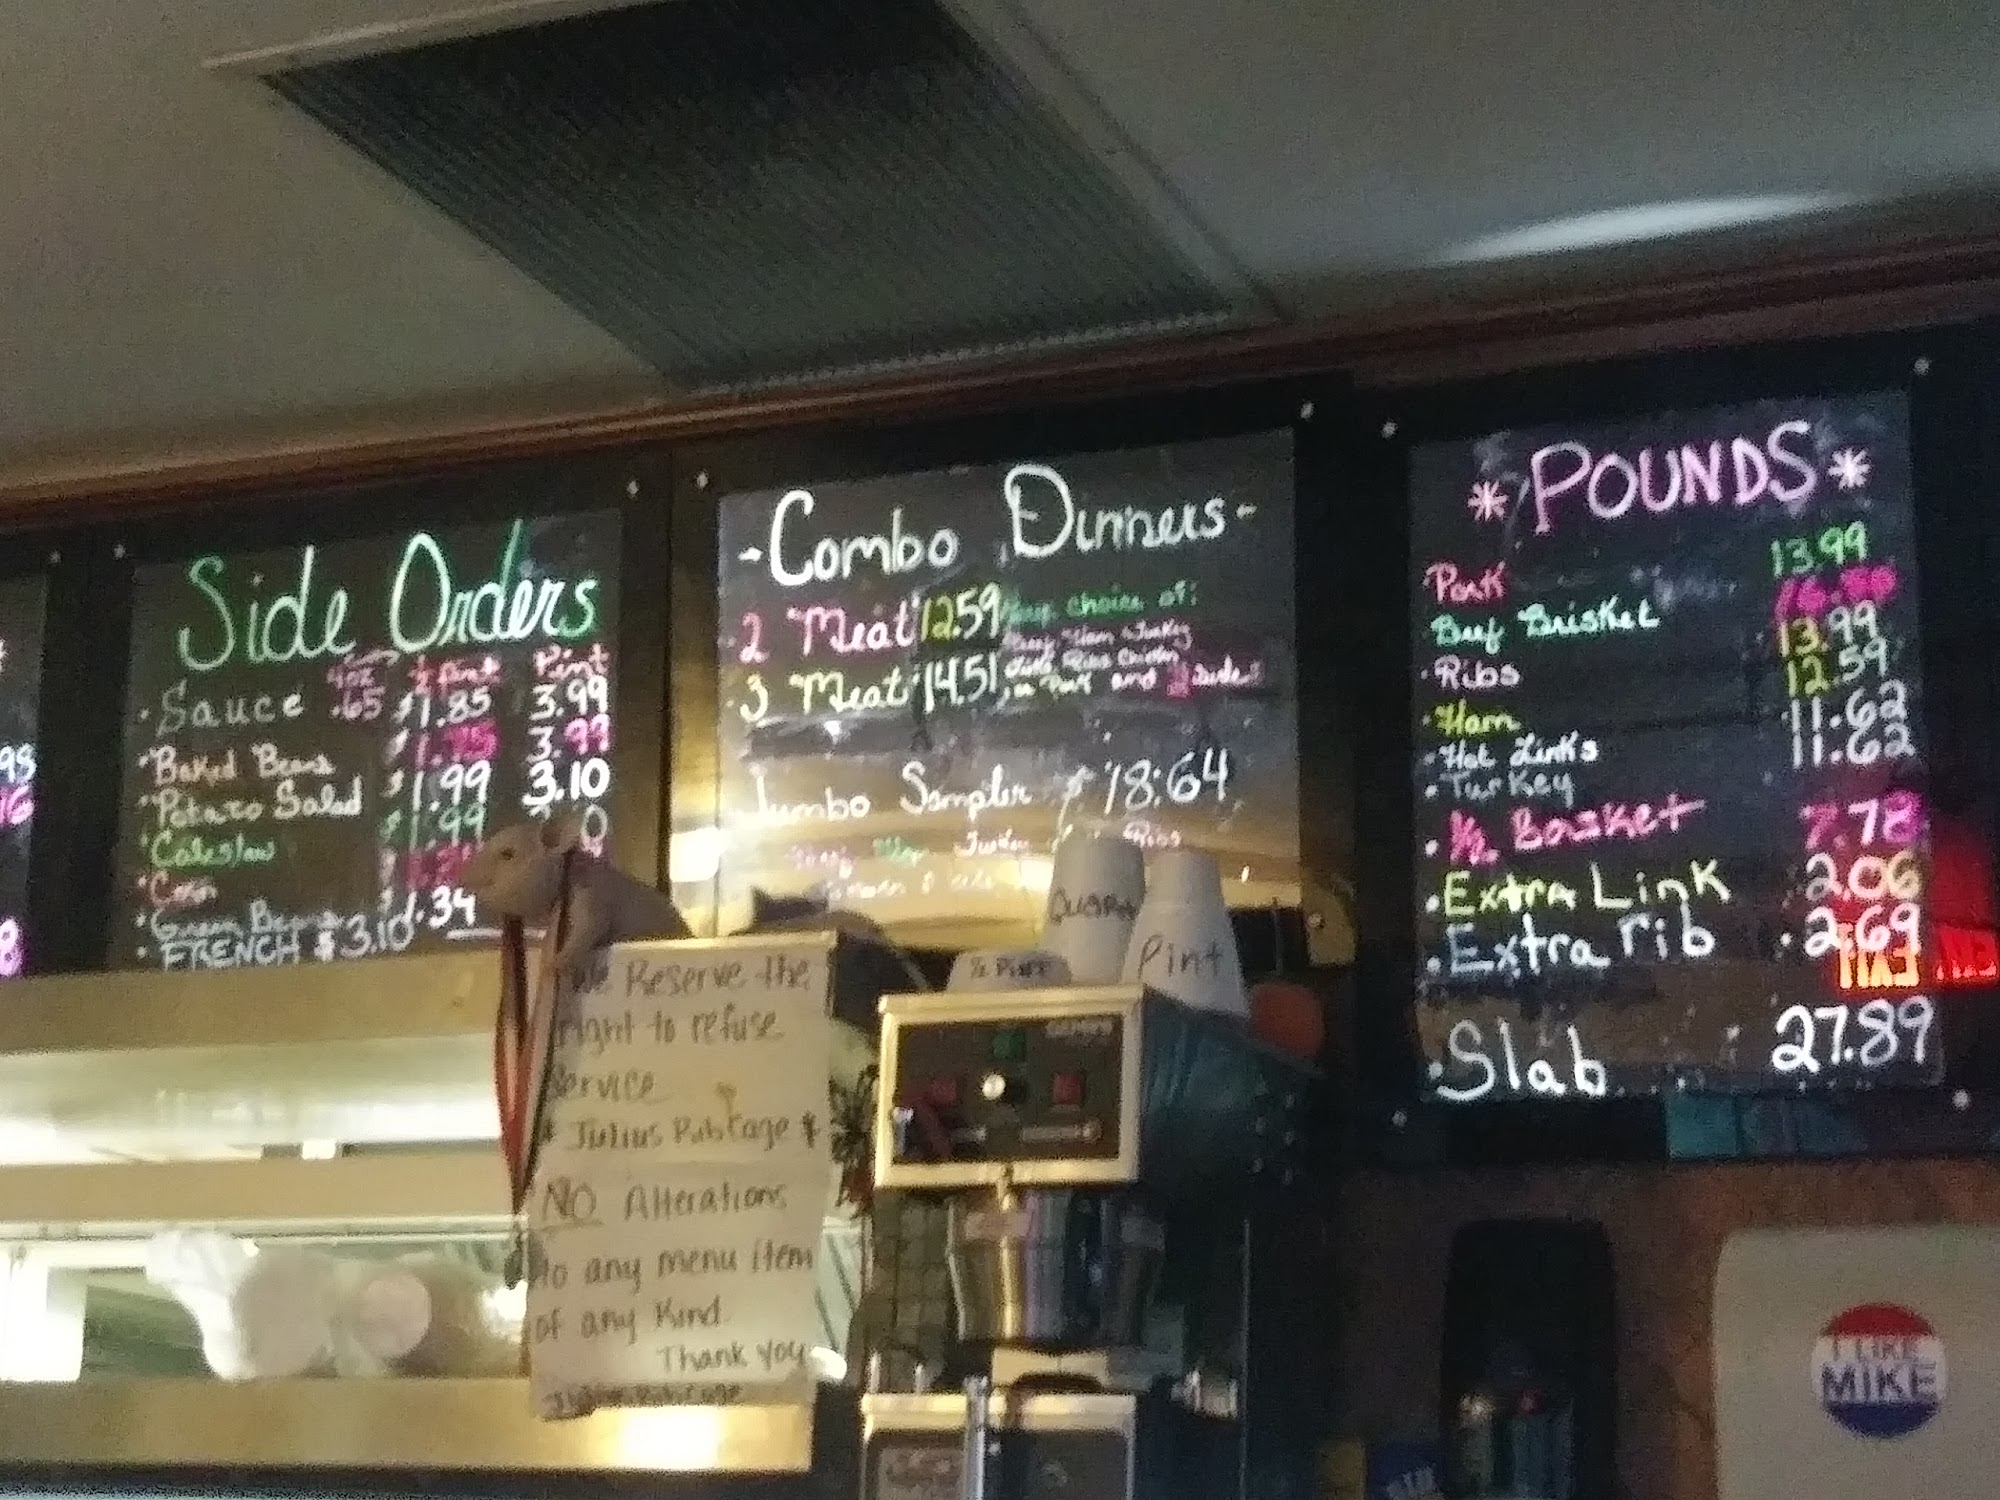 98
16
8
Side Orders
4oz ½ Pint Pint
Sauce .65 $1.85 3.99
Baked Beans $1.75 3.99
Potato Salad $1.99 3.10
Coleslaw $1.99 0
Corn
Green Beans 1.34
FRENCH $3.10
-Combo Dinners-
2 Meat 12.59 choice of:
Beef Ham Turkey
Ribs Chicken
3 Meat 14.51 or Pork and
Jumbo Sampler $18.64
Turkey Ribs
*POUNDS*
Pork 13.99
Beef Brisket
Ribs 13.99
Ham 12.59
Hot Links 11.62
Turkey 11.62
½ Basket 7.78
Extra Link 2.06
Extra rib .2.69
Slab 27.89
Quart
½ Pint
Pint
We Reserve the
right to refuse
Service
Julius Ribcage
NO Alterations
to any menu item
of any Kind.
Thank you
EXIT
I LIKE
MIKE